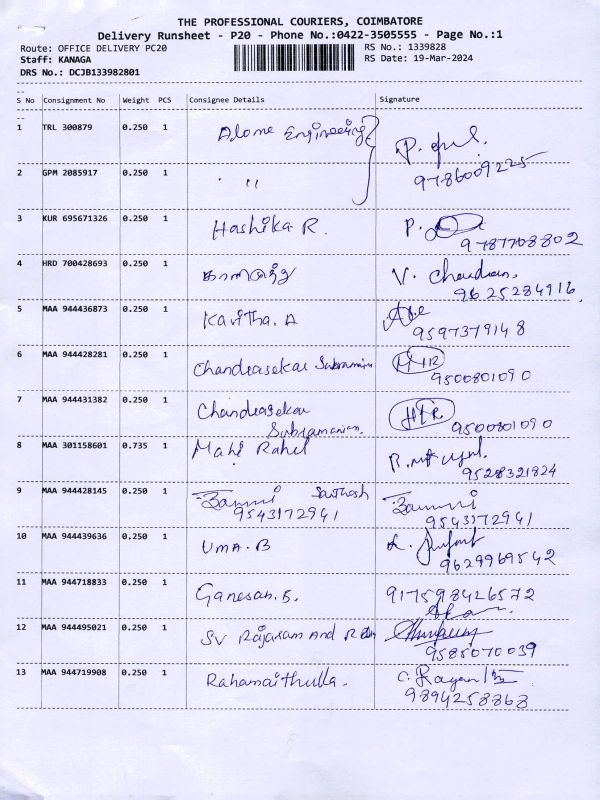 THE PROFESSIONAL COURIERS, COIMBATORE
Delivery Runsheet - P20 - Phone No.:0422-3505555 - Page No.:1
Route: OFFICE DELIVERY PC20 RS No.: 1339828
Staff: KANAGA RS Date: 19-Mar-2024
DRS No.: DCJB133982801
S No Consignment No Weight PCS Consignee Details Signature
1 TRL 300879 0.250 1 Alome Engineering P.
2 GPM 2085917 0.250 1 " 9786009225
3 KUR 695671326 0.250 1 Hashika R. P.
9787708802
4 HRD 700428693 0.250 1 V. Chandran.
9625284916
5 MAA 944436873 0.250 1 Kavitha. A
9597379148
6 MAA 944428281 0.250 1 Chandrasekar
9500801090
7 MAA 944431382 0.250 1 Chandrasekar
Subramanian. 9500801090
8 MAA 301158601 0.735 1 Mahi Rahul
9528321824
9 MAA 944428145 0.250 1 Santhosh
9543172941 9543172941
10 MAA 944439636 0.250 1 UMA. B
9629969542
11 MAA 944718833 0.250 1 Ganesan. B. 917598426572
12 MAA 944495021 0.250 1 SV Rajaram And
9585070039
13 MAA 944719908 0.250 1 Rahamaithulla.
9894258868